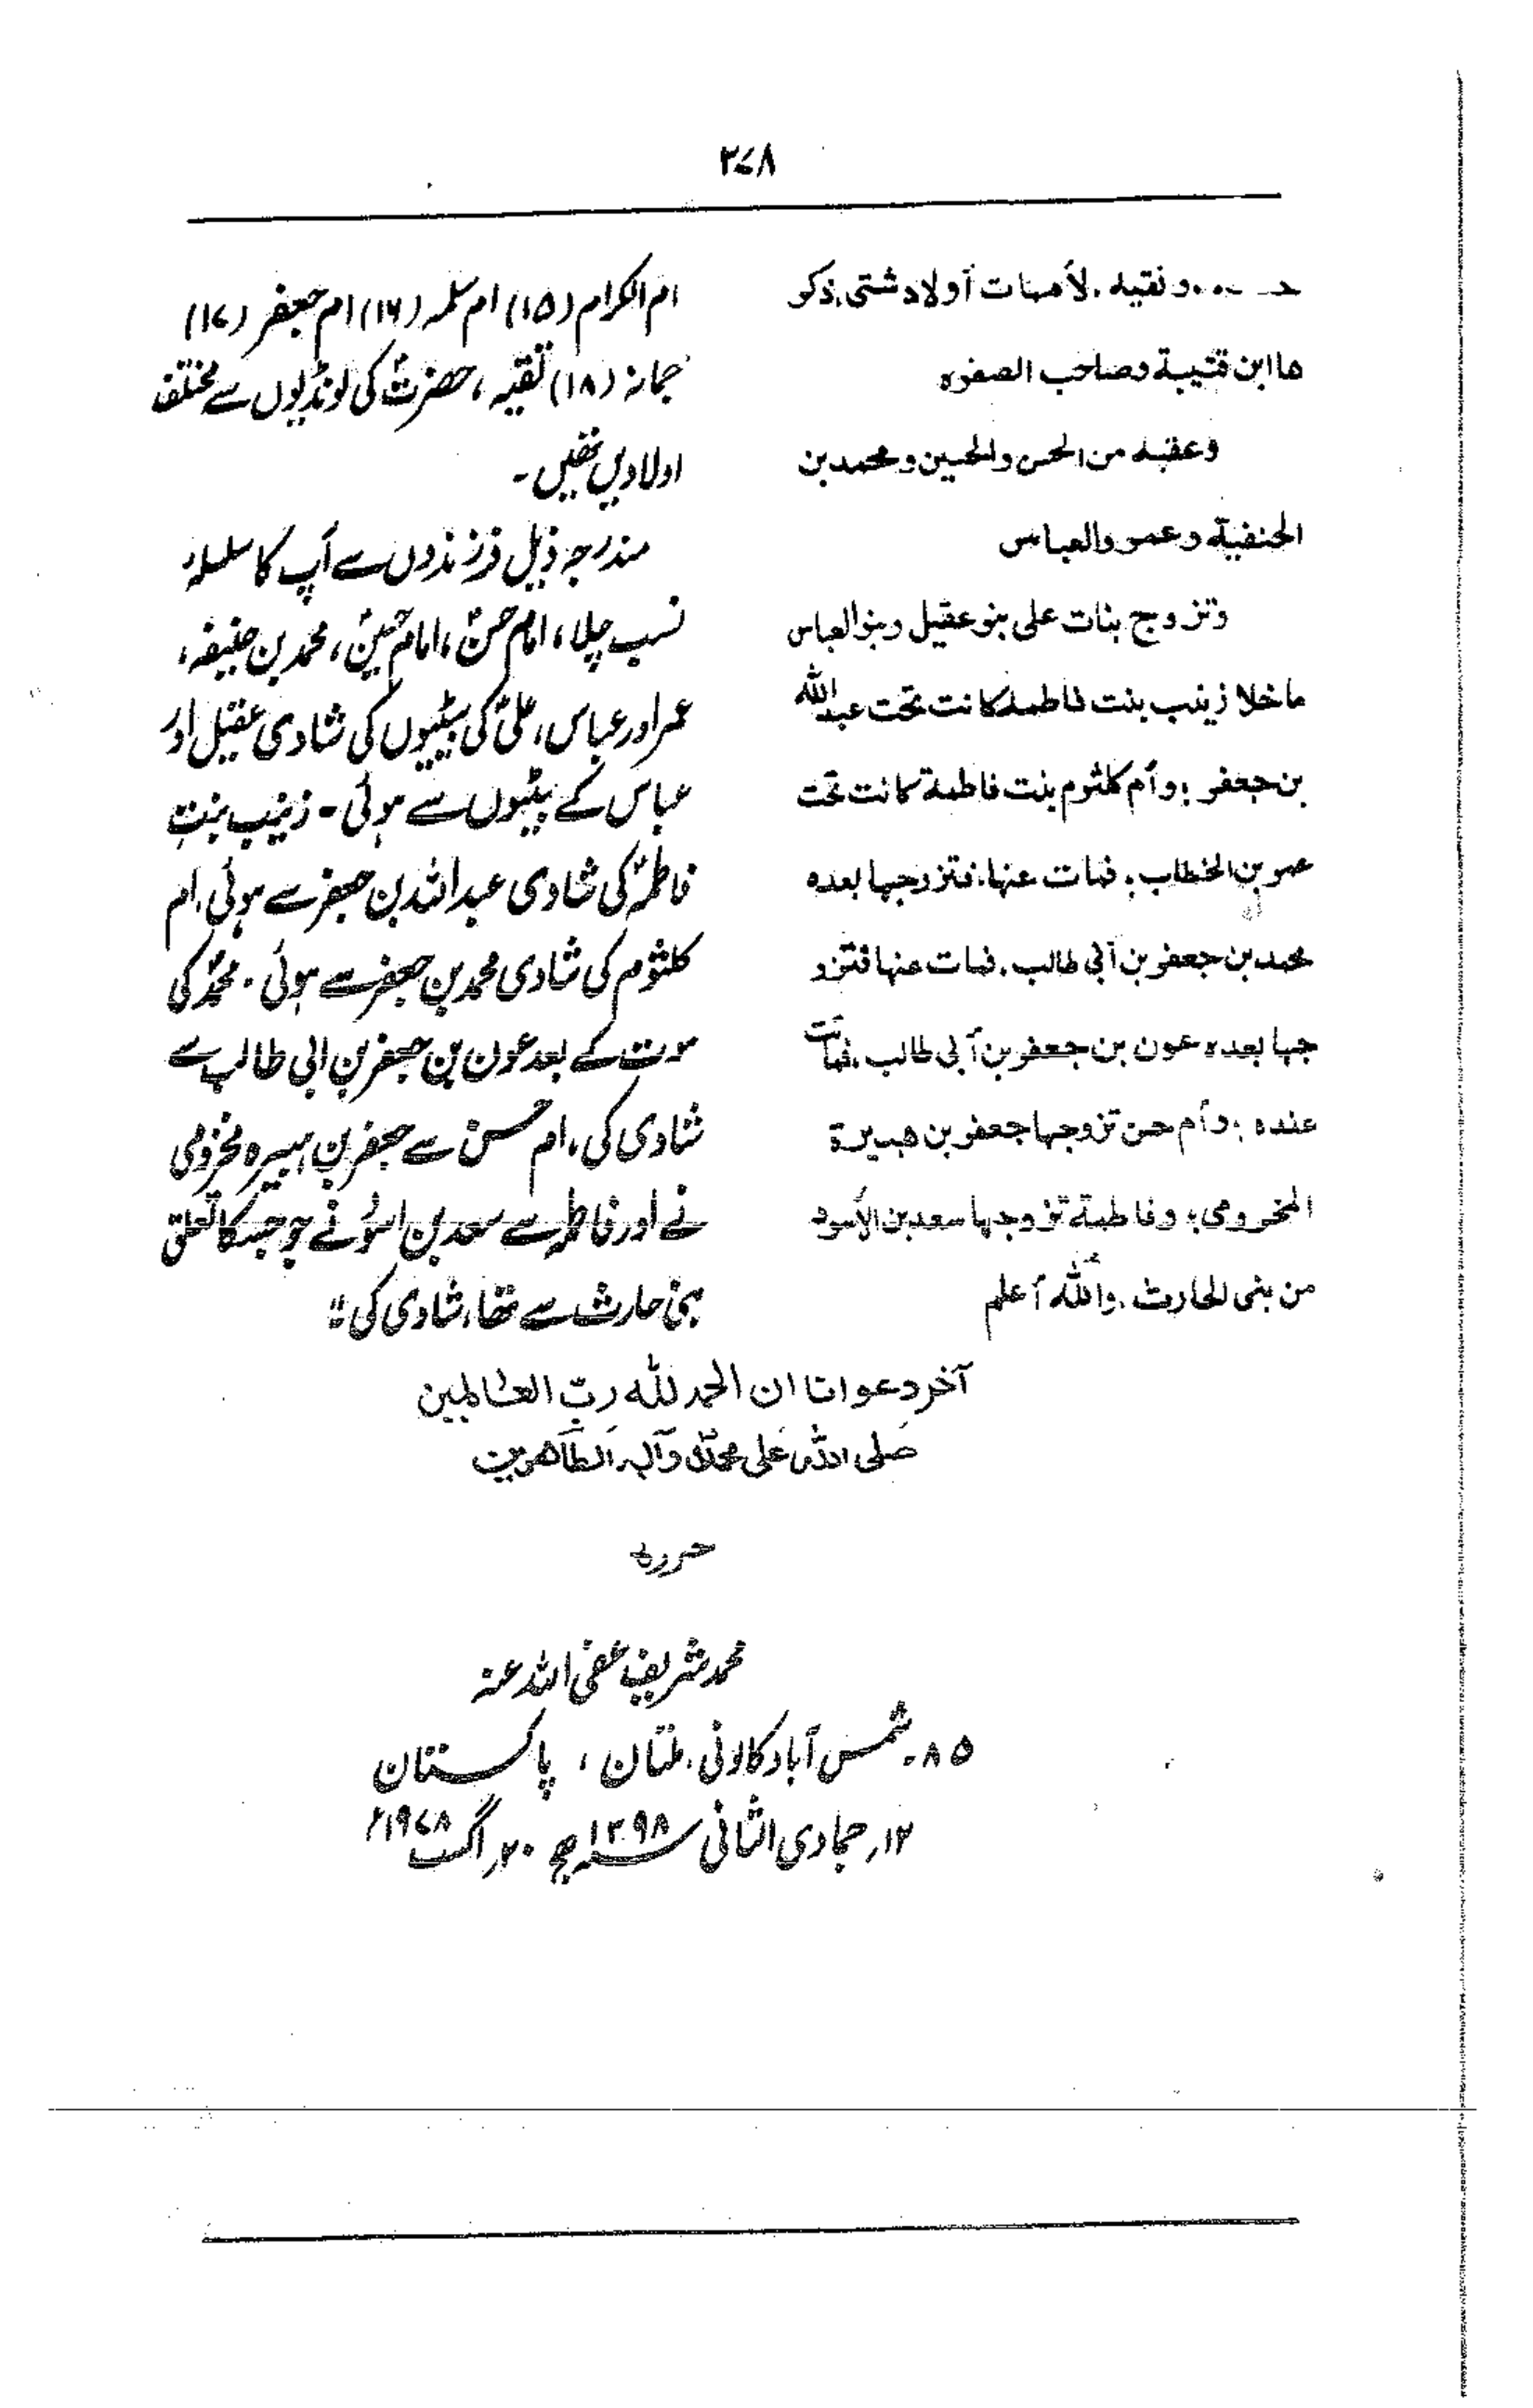 ۳۷۸
ونقیه، لأمهات أولاد شتى، ذکر
ها ابن قتیبة وصاحب الصفوه
وعقبه من الحسن والحسین ومحمد بن
الحنفیة وعمر والعباس
وتزوج بنات علی بنو عقیل وبنو العباس
ما خلا زینب بنت فاطمه کانت تحت عبد الله
بن جعفر؛ وأم کلثوم بنت فاطمة کانت تحت
عمر بن الخطاب، فمات عنها، فتزوجها بعده
محمد بن جعفر بن أبی طالب، فمات عنها فتزو
جها بعده عون بن جعفر بن أبی طالب، فماتت
عنده؛ وأم حسن تزوجها جعفر بن هبیرة
المخزومی؛ وفاطمة تزوجها سعد بن الأسود
من بنی الحارث، والله أعلم
ام الکرام (۱۵) ام سلمہ (۱۶) ام جعفر (۱۷)
جمانہ (۱۸) تقیہ، حضرتؑ کی لونڈیوں سے مختلف
اولادیں تھیں۔
مندرجہ ذیل فرزندوں سے آپ کا سلسلۂ
نسب چلا، امام حسنؑ، امام حسینؑ، محمد بن حنیفہ،
عمر اور عباس، علیؑ کی بیٹیوں کی شادی عقیل اور
عباس کے بیٹوں سے ہوئی۔ زینب بنتِ
فاطمہؑ کی شادی عبداللہ بن جعفر سے ہوئی، ام
کلثوم کی شادی محمد بن جعفر سے ہوئی۔ محمدؑ کی
موت کے بعد عون بن جعفر بن ابی طالب سے
شادی کی، ام حسن سے جعفر بن ہبیرہ مخزومی
نے اور فاطمہ سے سعد بن اسود نے جو جسکا تعلق
بنی حارث سے تھا، شادی کی"
آخر دعوانا ان الحمد لله ربّ العالمین
صلی اللہ علی محمدٍ وآلہ الطّاهرین
حررہ
محمد شریف عفی اللہ عنہ
۸۵۔ شمس آباد کالونی، ملتان، پاکستان
۱۲؍ جمادی الثانی ۱۳۹۸ھج ۲۰؍ اگست ۱۹۷۸ء